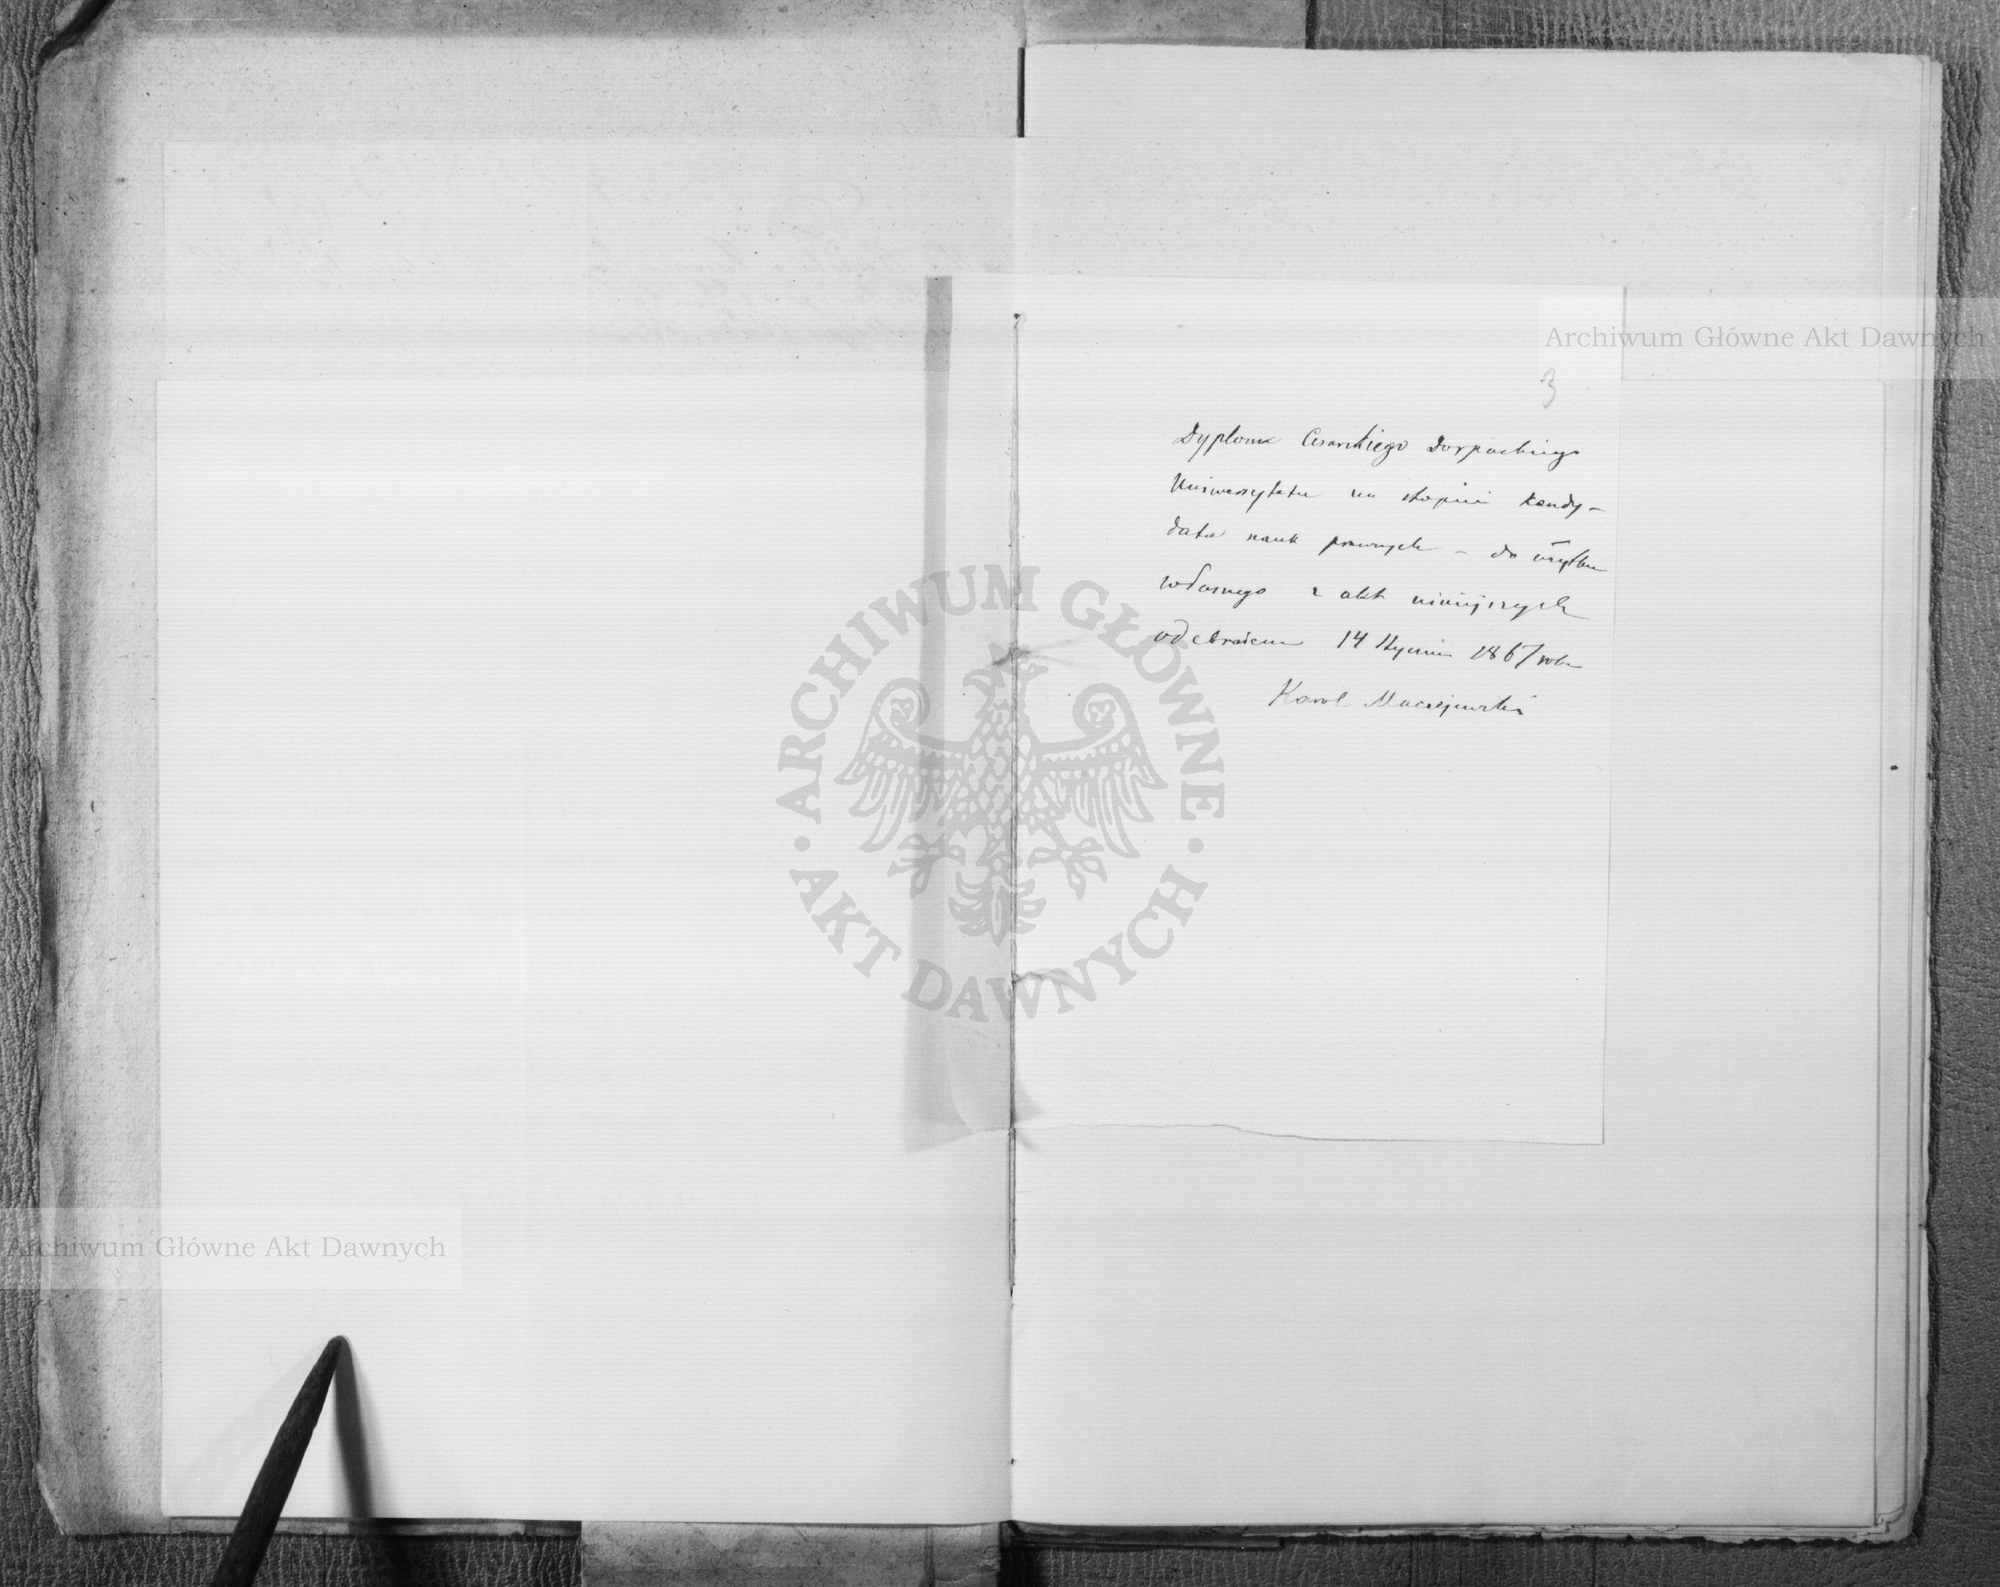 Archiwum Główne Akt Dawnych
3
Dyplom Cesarskiego Dorpackiego
Uniwersytetu na stopień kandy-
data nauk prawnych – do użytku
własnego z akt niniejszych
odebrałem 14 Stycznia 1867 roku
Karol Maciejewski
ARCHIWUM GŁÓWNE
AKT DAWNYCH
Archiwum Główne Akt Dawnych